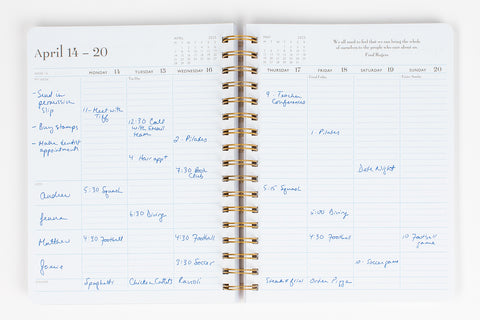 April 14 – 20
APRIL 2025
MAY 2025
We all need to feel that we can bring the whole
of ourselves to the people who care about us.
Fred Rogers
MONDAY 14
TUESDAY 15
WEDNESDAY 16
THURSDAY 17
FRIDAY 18
SATURDAY 19
SUNDAY 20
Tax Day
Good Friday
Easter Sunday
- Send in
permission
slip
- Buy stamps
- Make dentist
appointments
11 - Meet with
Tiff
12:30 Call
with Email
team
4 Hair appt
2 - Pilates
7:30 Book
Club
9 - Teacher
Conferences
1 - Pilates
Date Night
Andrew
5:30 Squash
5:15 Squash
6:30 Diving
5:00 Diving
Matthew
4:30 Football
4:30 Football
4:30 Football
10 Football
game
3:30 Soccer
10 - Soccer game
Spaghetti
Chicken Cutlets
Ravioli
Steak & fries
Order Pizza